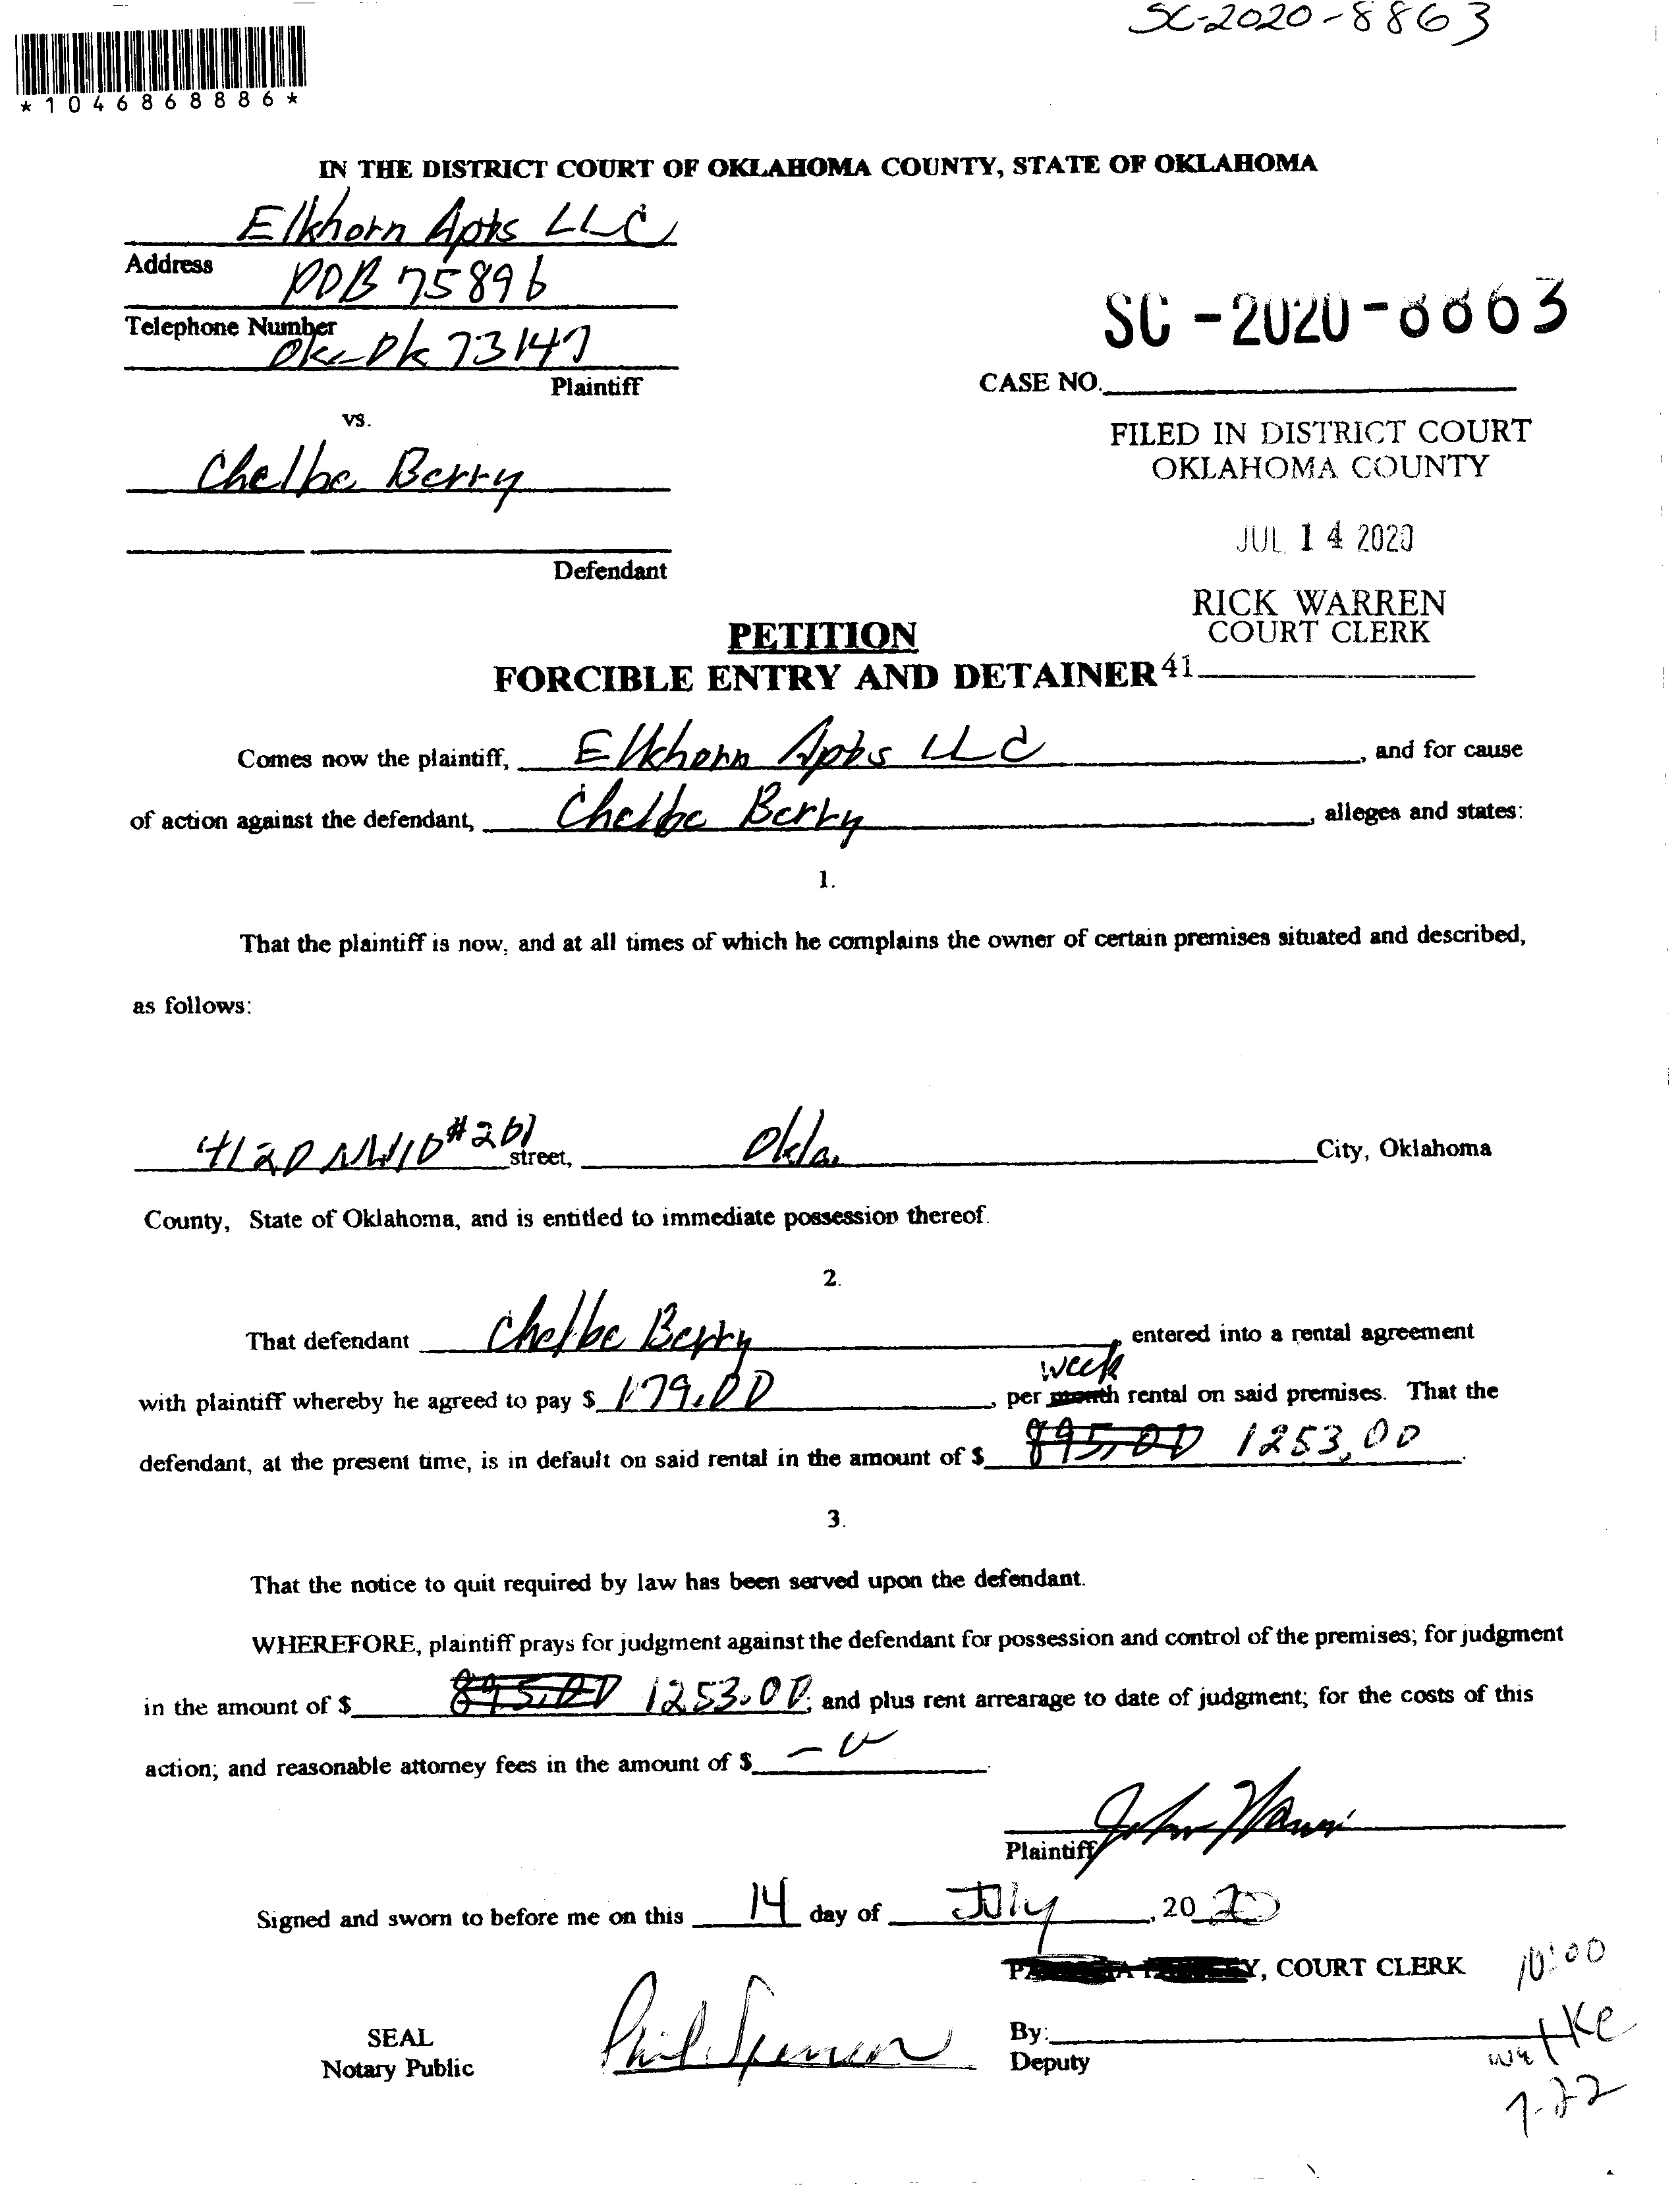 SC-2020-8863
*1046868886*
IN THE DISTRICT COURT OF OKLAHOMA COUNTY, STATE OF OKLAHOMA
Elkhorn Apts LLC
Address POB 75896
Telephone Number Okc Ok 73147
Plaintiff
SC-2020-8863
CASE NO.
vs.
FILED IN DISTRICT COURT
OKLAHOMA COUNTY
Chelbe Berry
JUL 14 2020
Defendant
RICK WARREN
COURT CLERK
PETITION
FORCIBLE ENTRY AND DETAINER 41
Comes now the plaintiff, Elkhorn Apts LLC, and for cause
of action against the defendant, Chelbe Berry, alleges and states:
1.
That the plaintiff is now, and at all times of which he complains the owner of certain premises situated and described,
as follows:
4120 NW10 #201 street, Okla. City, Oklahoma
County, State of Oklahoma, and is entitled to immediate possession thereof.
2.
That defendant Chelbe Berry, entered into a rental agreement
week
with plaintiff whereby he agreed to pay $ 179.00, per month rental on said premises. That the
defendant, at the present time, is in default on said rental in the amount of $ 895.00 1253.00.
3.
That the notice to quit required by law has been served upon the defendant.
WHEREFORE, plaintiff prays for judgment against the defendant for possession and control of the premises; for judgment
in the amount of $ 895.00 1253.00; and plus rent arrearage to date of judgment; for the costs of this
action; and reasonable attorney fees in the amount of $
Plaintiff John
Signed and sworn to before me on this 14 day of July, 2020
, COURT CLERK 10:00
SEAL
Notary Public
Phil
By:
Deputy
7-22